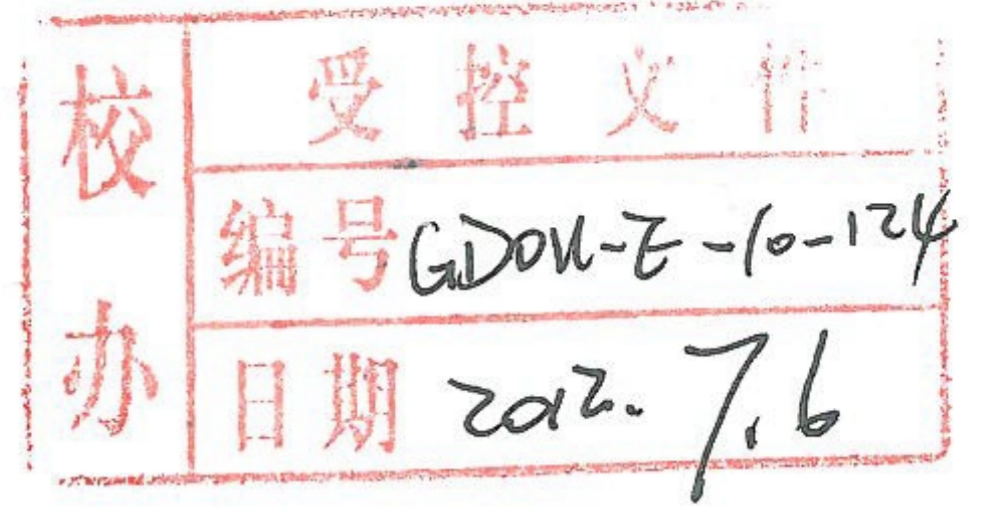 校办
受控文件
编号 GDOU-E-10-124
日期 2012.7.6